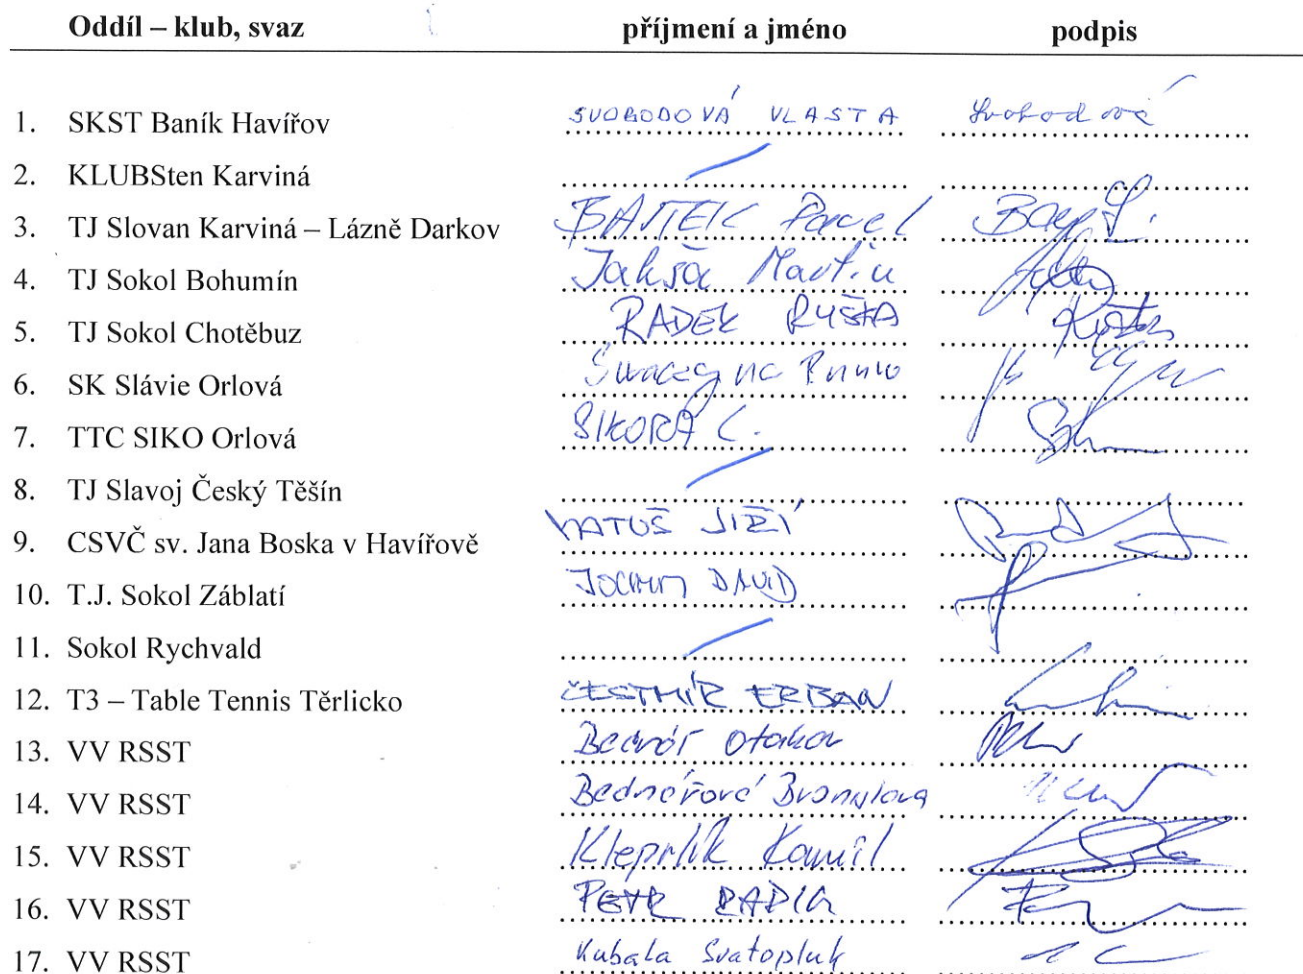 Oddíl – klub, svaz příjmení a jméno podpis
1. SKST Baník Havířov SVOBODOVÁ VLASTA Svobodová
2. KLUBSten Karviná
3. TJ Slovan Karviná – Lázně Darkov BAJTEK Pavel
4. TJ Sokol Bohumín Jakša Martin
5. TJ Sokol Chotěbuz RADEK RYŠKA
6. SK Slávie Orlová
7. TTC SIKO Orlová SIKORA L.
8. TJ Slavoj Český Těšín
9. CSVČ sv. Jana Boska v Havířově MATUŠ JIŘÍ
10. T.J. Sokol Záblatí DAVID
11. Sokol Rychvald
12. T3 – Table Tennis Těrlicko ČESTMÍR ERBAN
13. VV RSST Bednář Otakar
14. VV RSST Bednářová Bronislava
15. VV RSST Kleprlík Kamil
16. VV RSST PETR
17. VV RSST Kubala Svatopluk